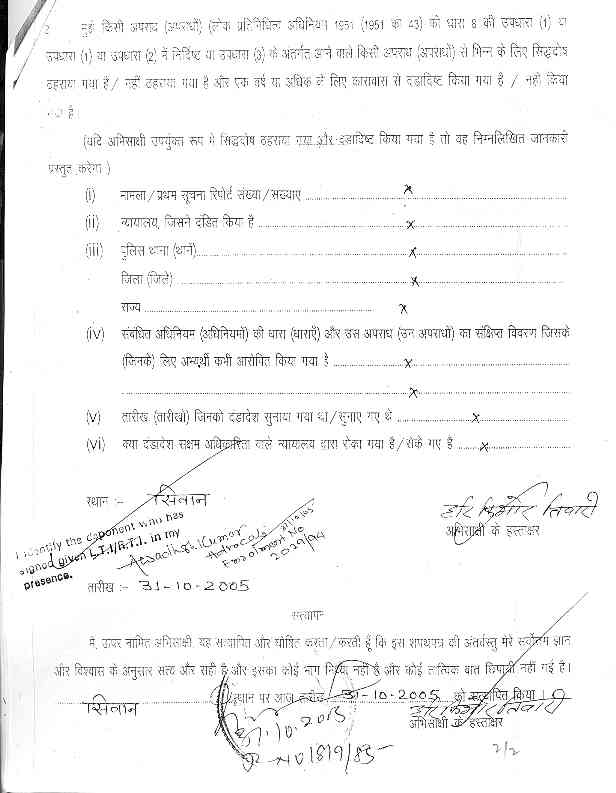 2 मुझे किसी अपराध (अपराधों) (लोक प्रतिनिधित्व अधिनियम 1951 (1951 का 43) की धारा 8 की उपधारा (1) या
उपधारा (1) या उपधारा (2) में निर्दिष्ट या उपधारा (3) के अंतर्गत आने वाले किसी अपराध (अपराधों) से भिन्न के लिए सिद्धदोष
ठहराया गया है / नहीं ठहराया गया है और एक वर्ष या अधिक के लिए कारावास से दंडादिष्ट किया गया है / नहीं किया
गया है।
(यदि अभिसाक्षी उपर्युक्त रूप में सिद्धदोष ठहराया गया और दंडादिष्ट किया गया है तो वह निम्नलिखित जानकारी
प्रस्तुत करेगा)
(i) मामला / प्रथम सूचना रिपोर्ट संख्या / संख्याएं x
(ii) न्यायालय, जिसने दंडित किया है x
(iii) पुलिस थाना (थाने) x
जिला (जिले) x
राज्य x
(iv) संबंधित अधिनियम (अधिनियमों) की धारा (धाराएँ) और उस अपराध (उन अपराधों) का संक्षिप्त विवरण जिसके
(जिनके) लिए अभ्यर्थी कभी आरोपित किया गया है x
x
(v) तारीख (तारीखों) जिनको दंडादेश सुनाया गया था / सुनाए गए थे x
(vi) क्या दंडादेश सक्षम अधिकारिता वाले न्यायालय द्वारा रोका गया है / रोके गए है x
स्थान :- सिवान
हरि किशोर तिवारी
अभिसाक्षी के हस्ताक्षर
I identify the deponent who has
signed given L.T.I/R.T.I. in my
presence.
Awadhesh Kumar
Advocate
Enrolment No
2029/94
तारीख :- 31-10-2005
सत्यापन
मैं, ऊपर नामित अभिसाक्षी, यह सत्यापित और घोषित करता / करती हूँ कि इस शपथपत्र की अंतर्वस्तु मेरे सर्वोत्तम ज्ञान
और विश्वास के अनुसार सत्य और सही है और इसका कोई भाग मिथ्या नहीं है और कोई तात्विक बात छिपायी नहीं गई है।
सिवान स्थान पर आज तारीख 31-10-2005 को सत्यापित किया।
हरि किशोर तिवारी
अभिसाक्षी के हस्ताक्षर
2/2